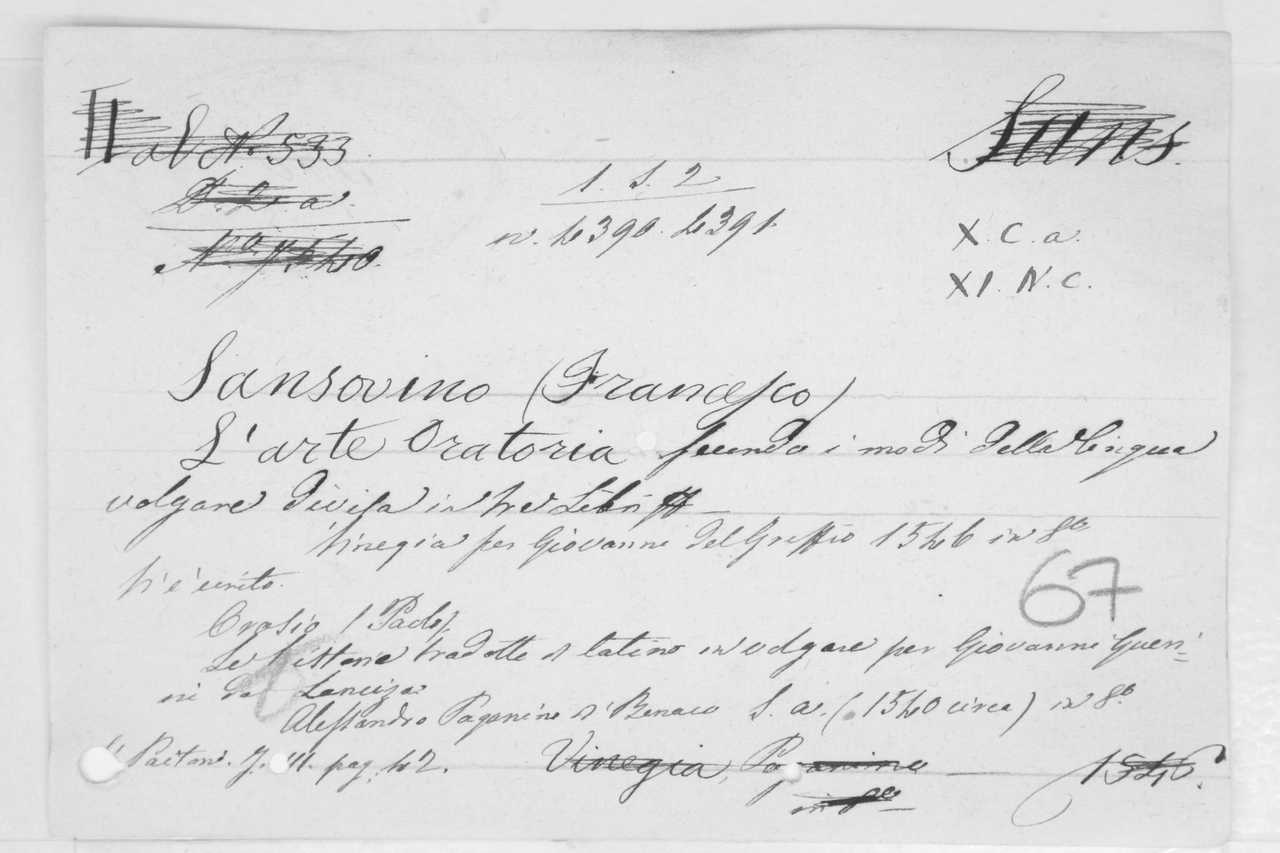 al No 533.
D. 2. a.
1. S. 2
n. 4390. 4391.
X. C. a.
XI. N. C.
Sansovino (Francesco)
L'arte Oratoria secondo i modi della lingua
volgare divisa in tre Libri
Vinegia per Giovanni del Griffio 1546 in 8º
V'è unito.
67
Orosio (Paolo)
Le Historie tradotte di latino in volgare per Giovanni Gueri-
ni da Lanciza
Alessandro Paganino di Benaco S. a. (1540 circa) in 8º.
V. Paiton. T. III. pag. 42.
Vinegia, Paganino 1546.
in 8º